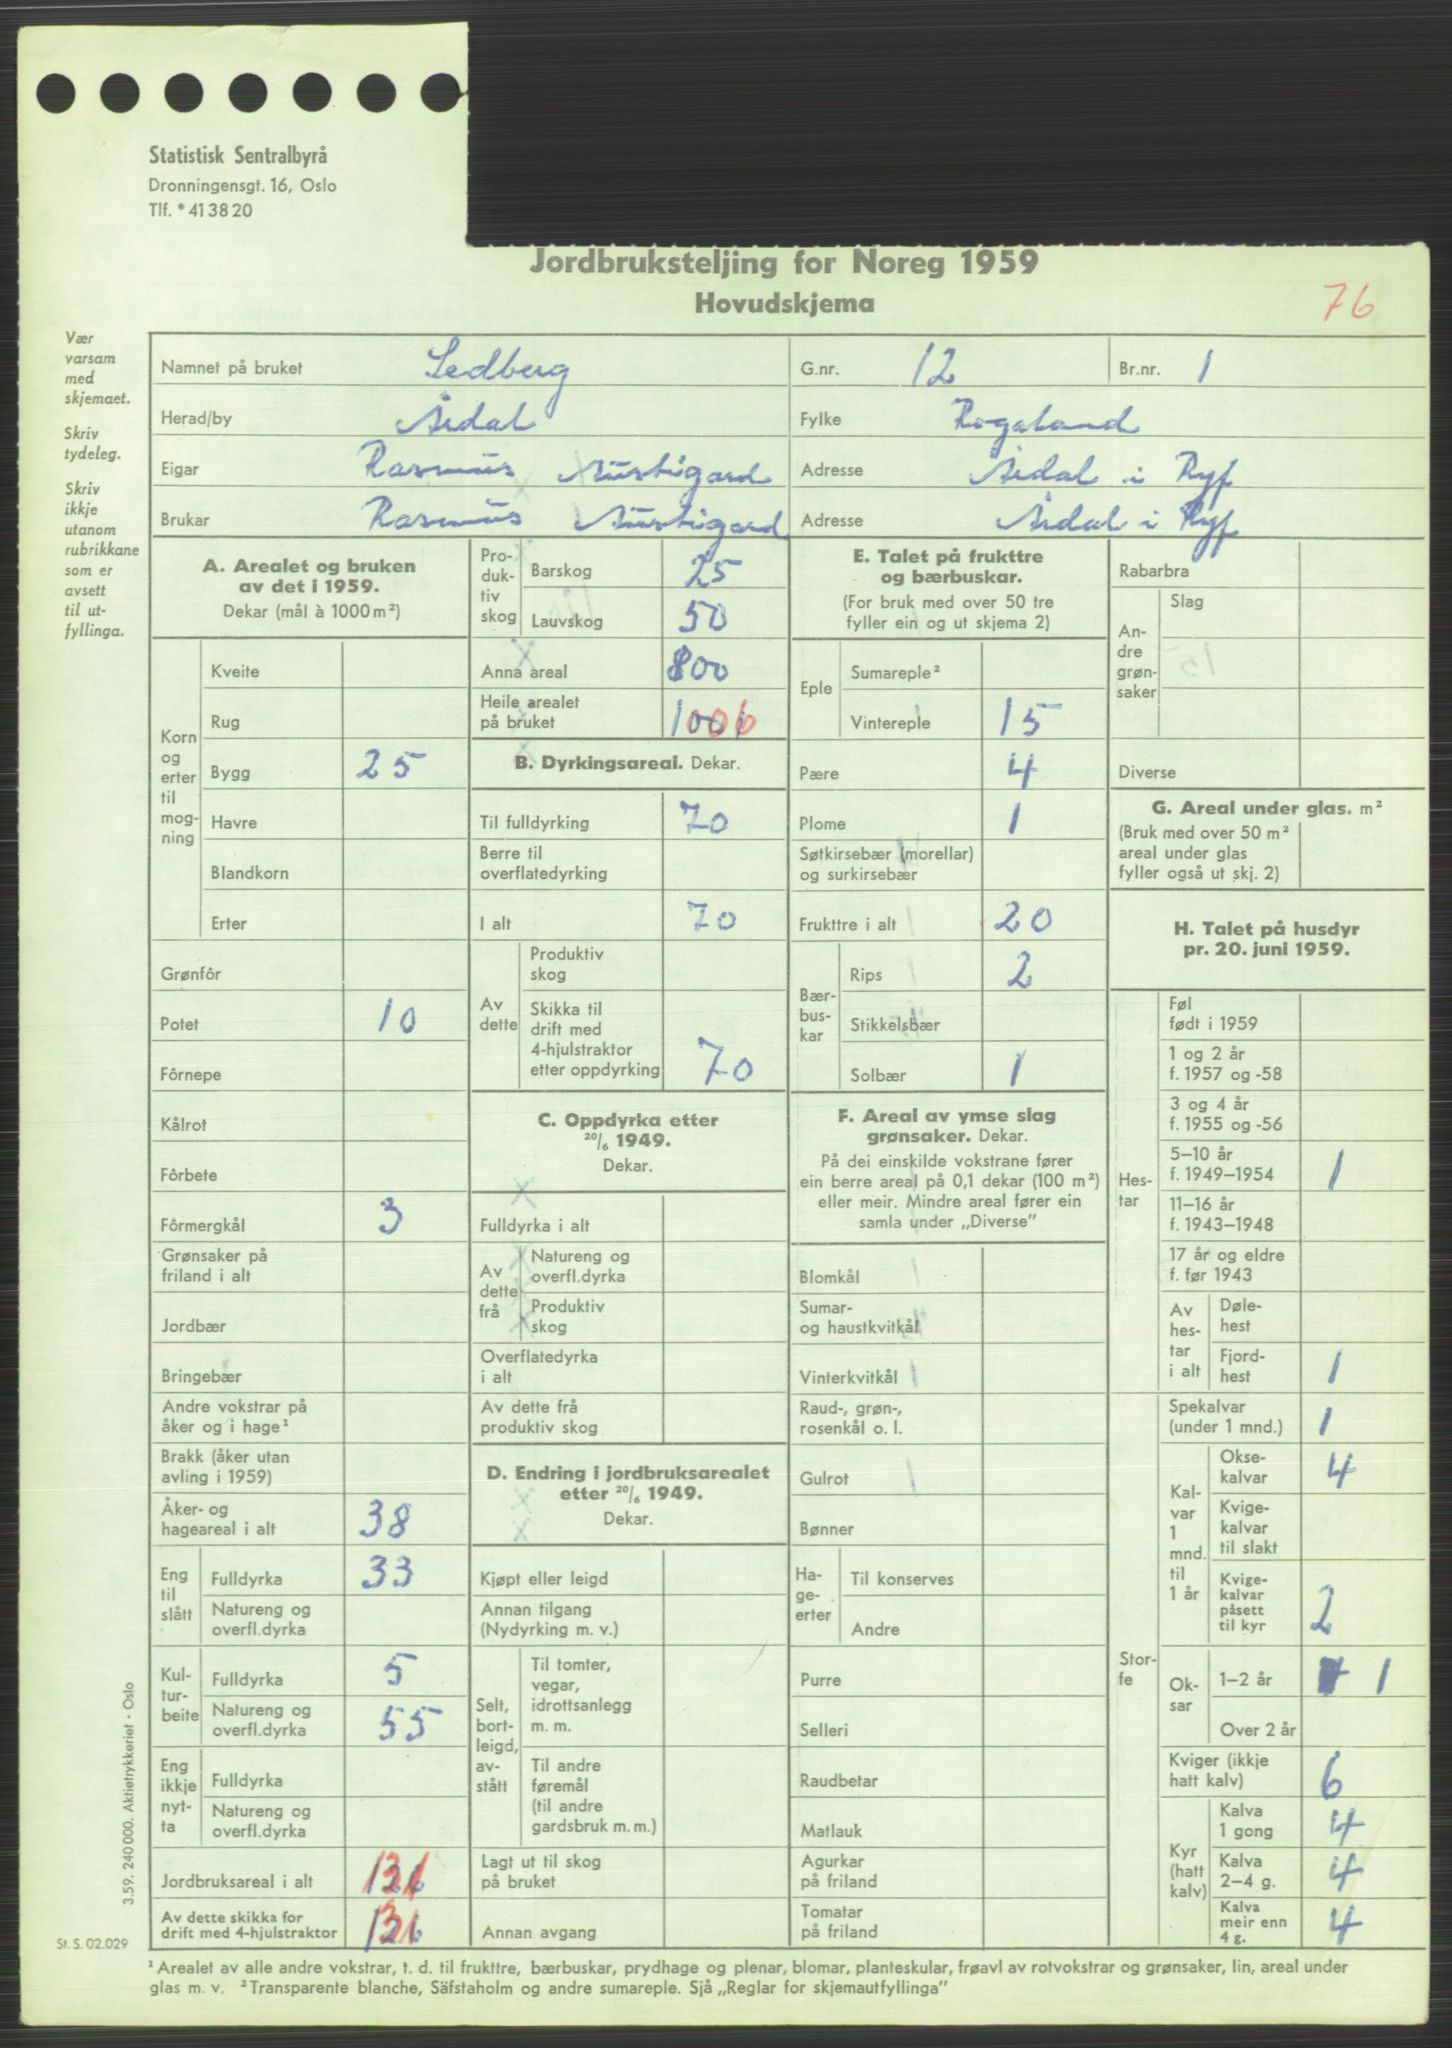 Statistisk Sentralbyrå
Dronningensgt. 16, Oslo
Tlf. *41 38 20
Jordbruksteljing for Noreg 1959
Hovudskjema
76
Vær
varsam
med
skjemaet.
Skriv
tydeleg.
Skriv
ikkje
utanom
rubrikkane
som er
avsett
til ut-
fyllinga.
Namnet på bruket Sedberg G.nr. 12 Br.nr. 1
Herad/by Årdal Fylke Rogaland
Eigar Rasmus Austigard Adresse Årdal i Ryf
Brukar Rasmus Austigard Adresse Årdal i Ryf
A. Arealet og bruken
av det i 1959.
Dekar (mål à 1000 m²)
Korn
og
erter
til
mog-
ning
Kveite
Rug
Bygg 25
Havre
Blandkorn
Erter
Grønfôr
Potet 10
Fôrnepe
Kålrot
Fôrbete
Fôrmergkål 3
Grønsaker på
friland i alt
Jordbær
Bringebær
Andre vokstrar på
åker og i hage¹
Brakk (åker utan
avling i 1959)
Åker- og
hageareal i alt 38
Eng
til
slått
Fulldyrka 33
Natureng og
overfl.dyrka
Kul-
tur-
beite
Fulldyrka 5
Natureng og
overfl.dyrka 55
Eng
ikkje
nyt-
ta
Fulldyrka
Natureng og
overfl.dyrka
Jordbruksareal i alt 131
Av dette skikka for
drift med 4-hjulstraktor 131
Pro-
duk-
tiv
skog
Barskog 25
Lauvskog 50
Anna areal 800
Heile arealet
på bruket 1006
B. Dyrkingsareal. Dekar.
Til fulldyrking 70
Berre til
overflatedyrking
I alt 70
Av
dette
Produktiv
skog
Skikka til
drift med
4-hjulstraktor
etter oppdyrking 70
C. Oppdyrka etter
20/6 1949.
Dekar.
Fulldyrka i alt
Av
dette
frå
Natureng og
overfl.dyrka
Produktiv
skog
Overflatedyrka
i alt
Av dette frå
produktiv skog
D. Endring i jordbruksarealet
etter 20/6 1949.
Dekar.
Kjøpt eller leigd
Annan tilgang
(Nydyrking m. v.)
Selt,
bort-
leigd,
av-
stått
Til tomter,
vegar,
idrottsanlegg
m. m.
Til andre
føremål
(til andre
gardsbruk m. m.)
Lagt ut til skog
på bruket
Annan avgang
E. Talet på frukttre
og bærbuskar.
(For bruk med over 50 tre
fyller ein og ut skjema 2)
Eple
Sumareple²
Vintereple 15
Pære 4
Plome 1
Søtkirsebær (morellar)
og surkirsebær
Frukttre i alt 20
Bær-
bus-
kar
Rips 2
Stikkelsbær
Solbær 1
F. Areal av ymse slag
grønsaker. Dekar.
På dei einskilde vokstrane fører
ein berre areal på 0,1 dekar (100 m²)
eller meir. Mindre areal fører ein
samla under „Diverse”
Blomkål
Sumar-
og haustkvitkål
Vinterkvitkål
Raud-, grøn-,
rosenkål o. l.
Gulrot
Bønner
Ha-
ge-
erter
Til konserves
Andre
Purre
Selleri
Raudbetar
Matlauk
Agurkar
på friland
Tomatar
på friland
Rabarbra
An-
dre
grøn-
saker
Slag
Diverse
G. Areal under glas. m²
(Bruk med over 50 m²
areal under glas
fyller også ut skj. 2)
H. Talet på husdyr
pr. 20. juni 1959.
Hes-
tar
Føl
født i 1959
1 og 2 år
f. 1957 og -58
3 og 4 år
f. 1955 og -56
5–10 år
f. 1949–1954 1
11–16 år
f. 1943–1948
17 år og eldre
f. før 1943
Av
hes-
tar
i alt
Døle-
hest
Fjord-
hest 1
Stor-
fe
Spekalvar
(under 1 mnd.) 1
Kal-
var
1
mnd.
til
1 år
Okse-
kalvar 4
Kvige-
kalvar
til slakt
Kvige-
kalvar
påsett
til kyr 2
Ok-
sar
1–2 år 1
Over 2 år
Kviger (ikkje
hatt kalv) 6
Kyr
(hatt
kalv)
Kalva
1 gong 4
Kalva
2–4 g. 4
Kalva
meir enn
4 g. 4
3.59. 240 000. Aktietrykkeriet - Oslo
St. S. 02.029
¹ Arealet av alle andre vokstrar, t. d. til frukttre, bærbuskar, prydhage og plenar, blomar, planteskular, frøavl av rotvokstrar og grønsaker, lin, areal under
glas m. v. ² Transparente blanche, Säfstaholm og andre sumareple. Sjå „Reglar for skjemautfyllinga”